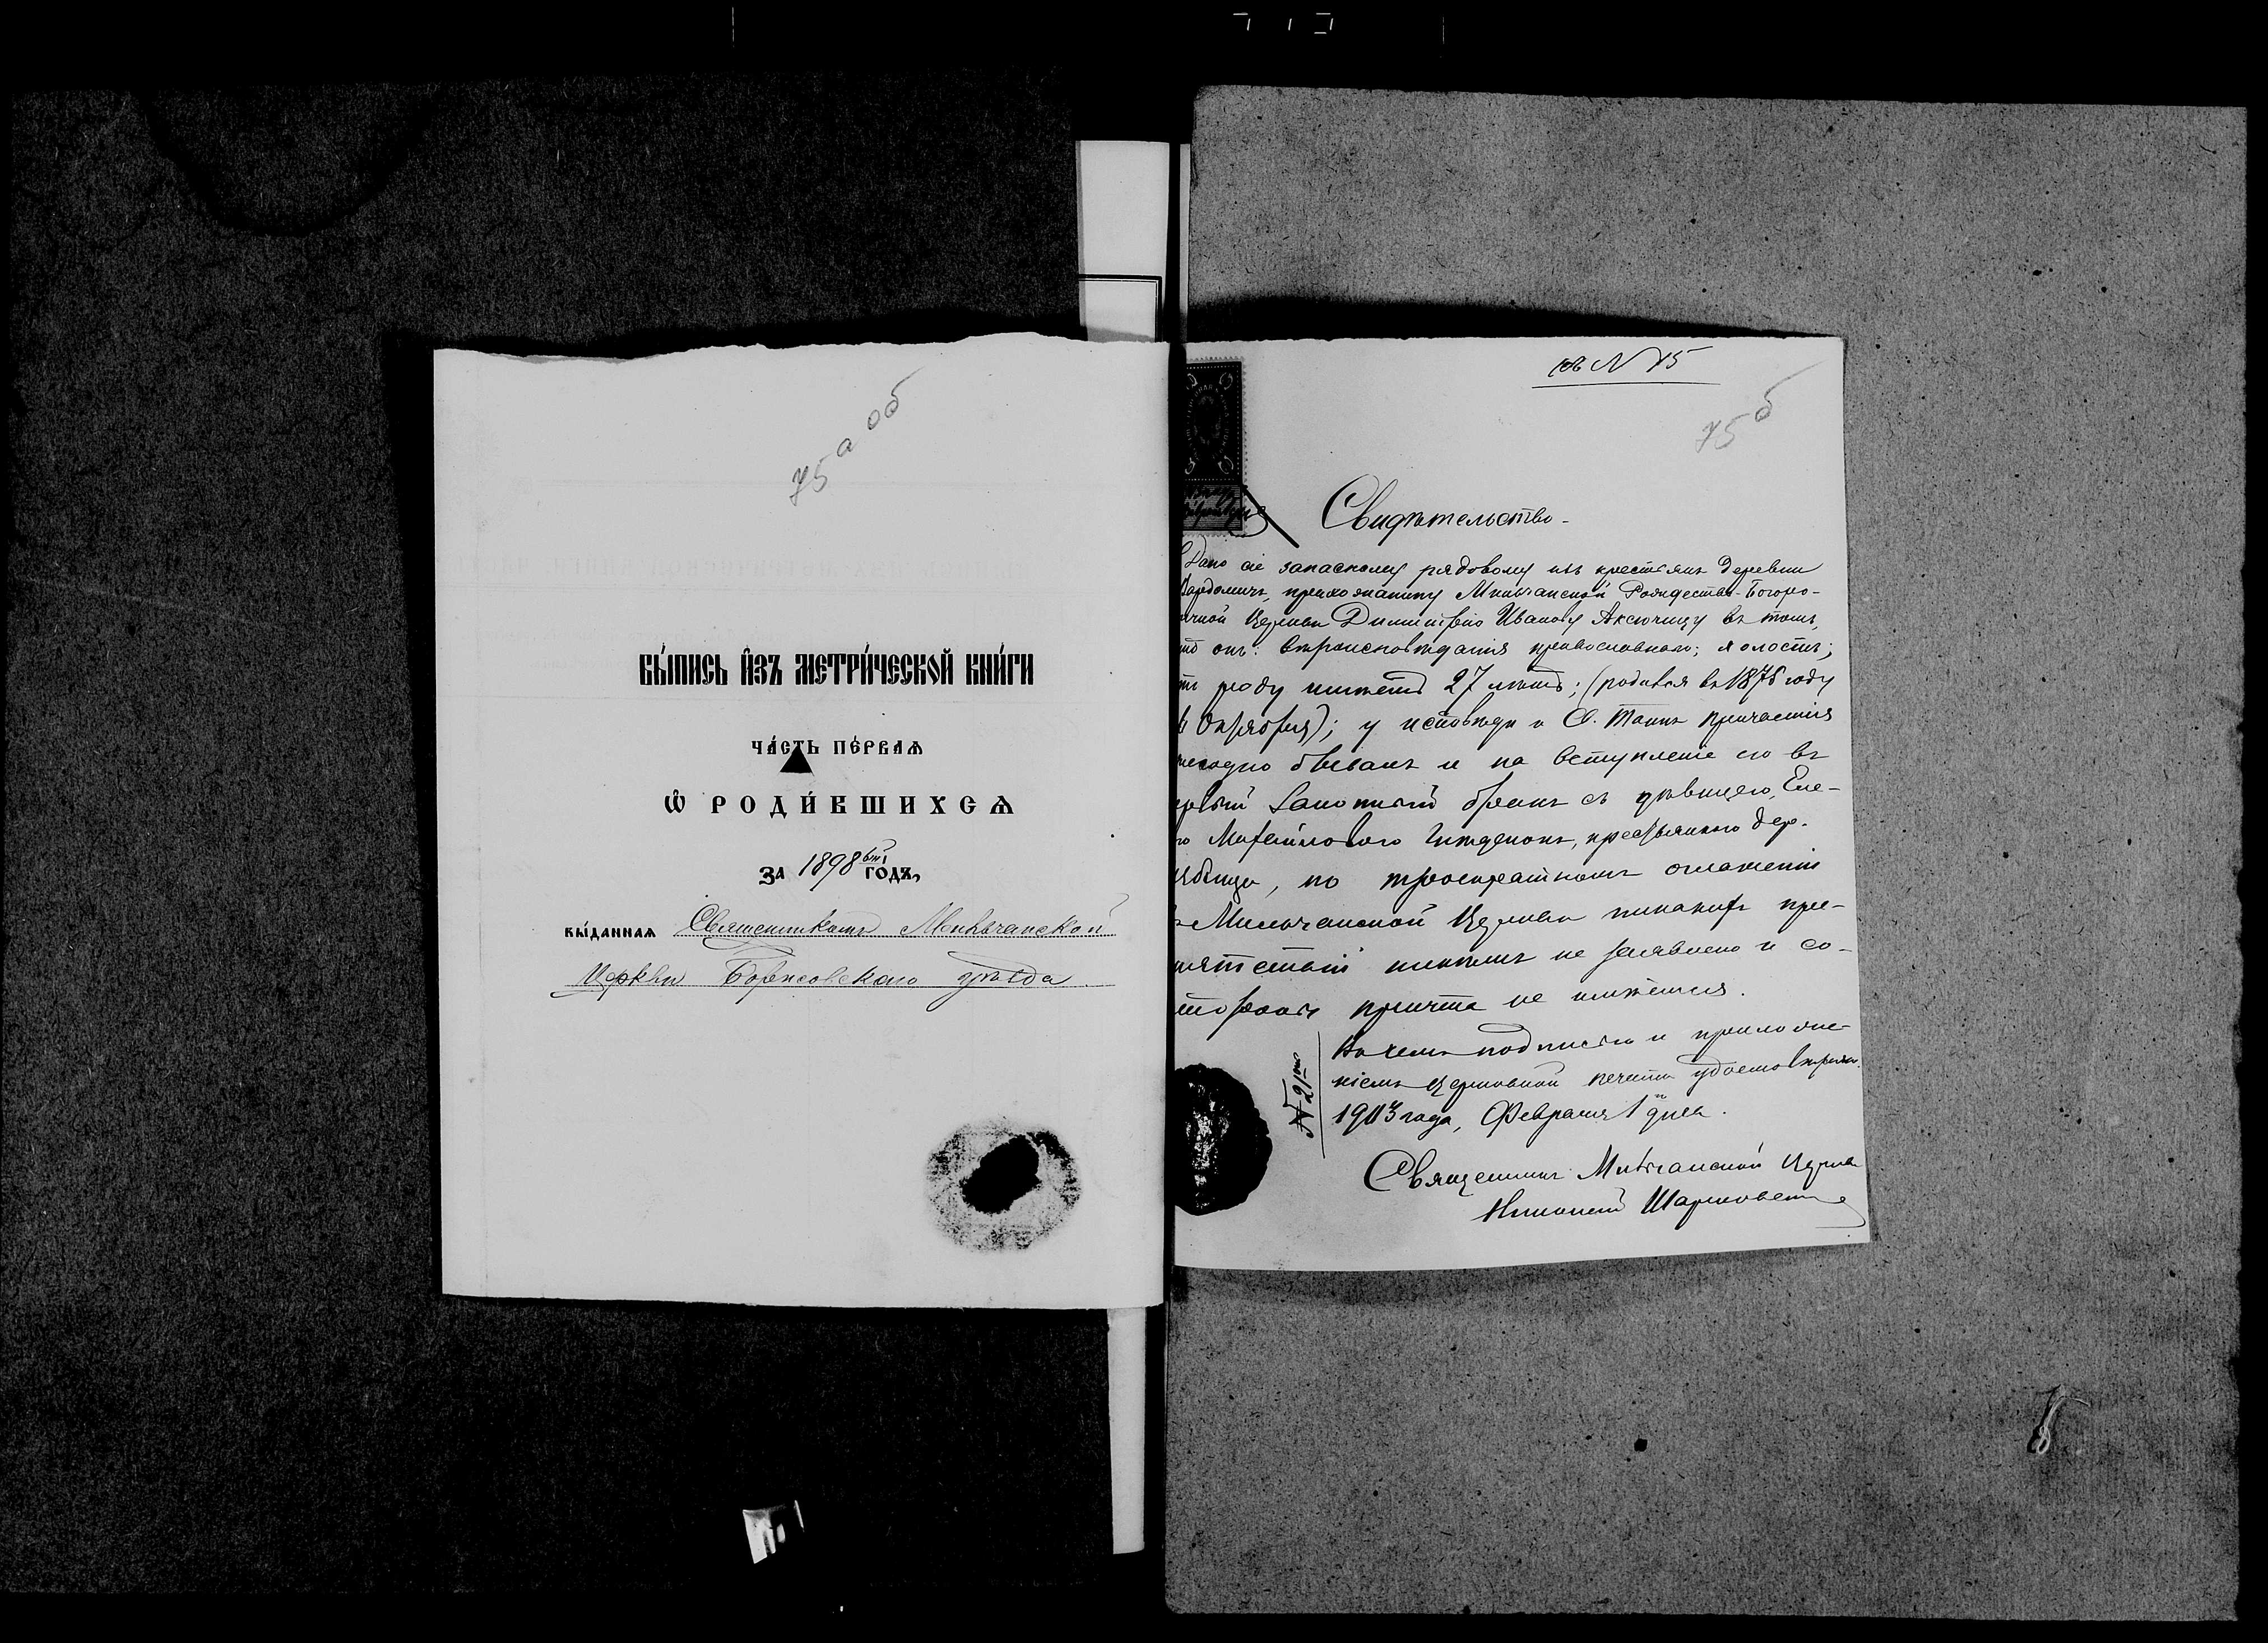 75 а об
ВЫ́ПИСЬ И҆ЗЪ МЕТРИ́ЧЕСКОЙ КНИ́ГИ
ЧА́СТЬ ПЕ́РВАѦ
Ѡ҆ РОДИ́ВШИХСѦ
ЗА 1898 ый ГОДЪ,
ВЫ́ДАННАѦ Священникомъ Мильчанской
Церкви Борисовскаго уѣзда
къ N 75
75 б
Свидѣтельство
Дано сіе запасному рядовому изъ крестьянъ деревни
прихожанину Мильчанской Рождество-Богоро-
ичной Церкви Димитрію Иванову Аксючицу въ томъ,
что онъ: вѣроисповѣданія православнаго; холостъ;
роду имѣетъ 27 лѣтъ; (родился въ 1875 году
Октября); у исповѣди и С. Таинъ причастія
бывалъ и на вступленіе его въ
законный бракъ съ дѣвицею, Еле-
крестьянкою дер.
по троекратномъ оглашеніи
Мильчанской Церкви никакихъ пре-
пятствій никѣмъ не заявлено и со
причта не имѣется.
На чемъ подписью и приложе-
ніемъ церковной печати удостовѣряю.
1903 года, Февраля 1 дня.
N 21
Священникъ Мильчанской Церкви
Николай